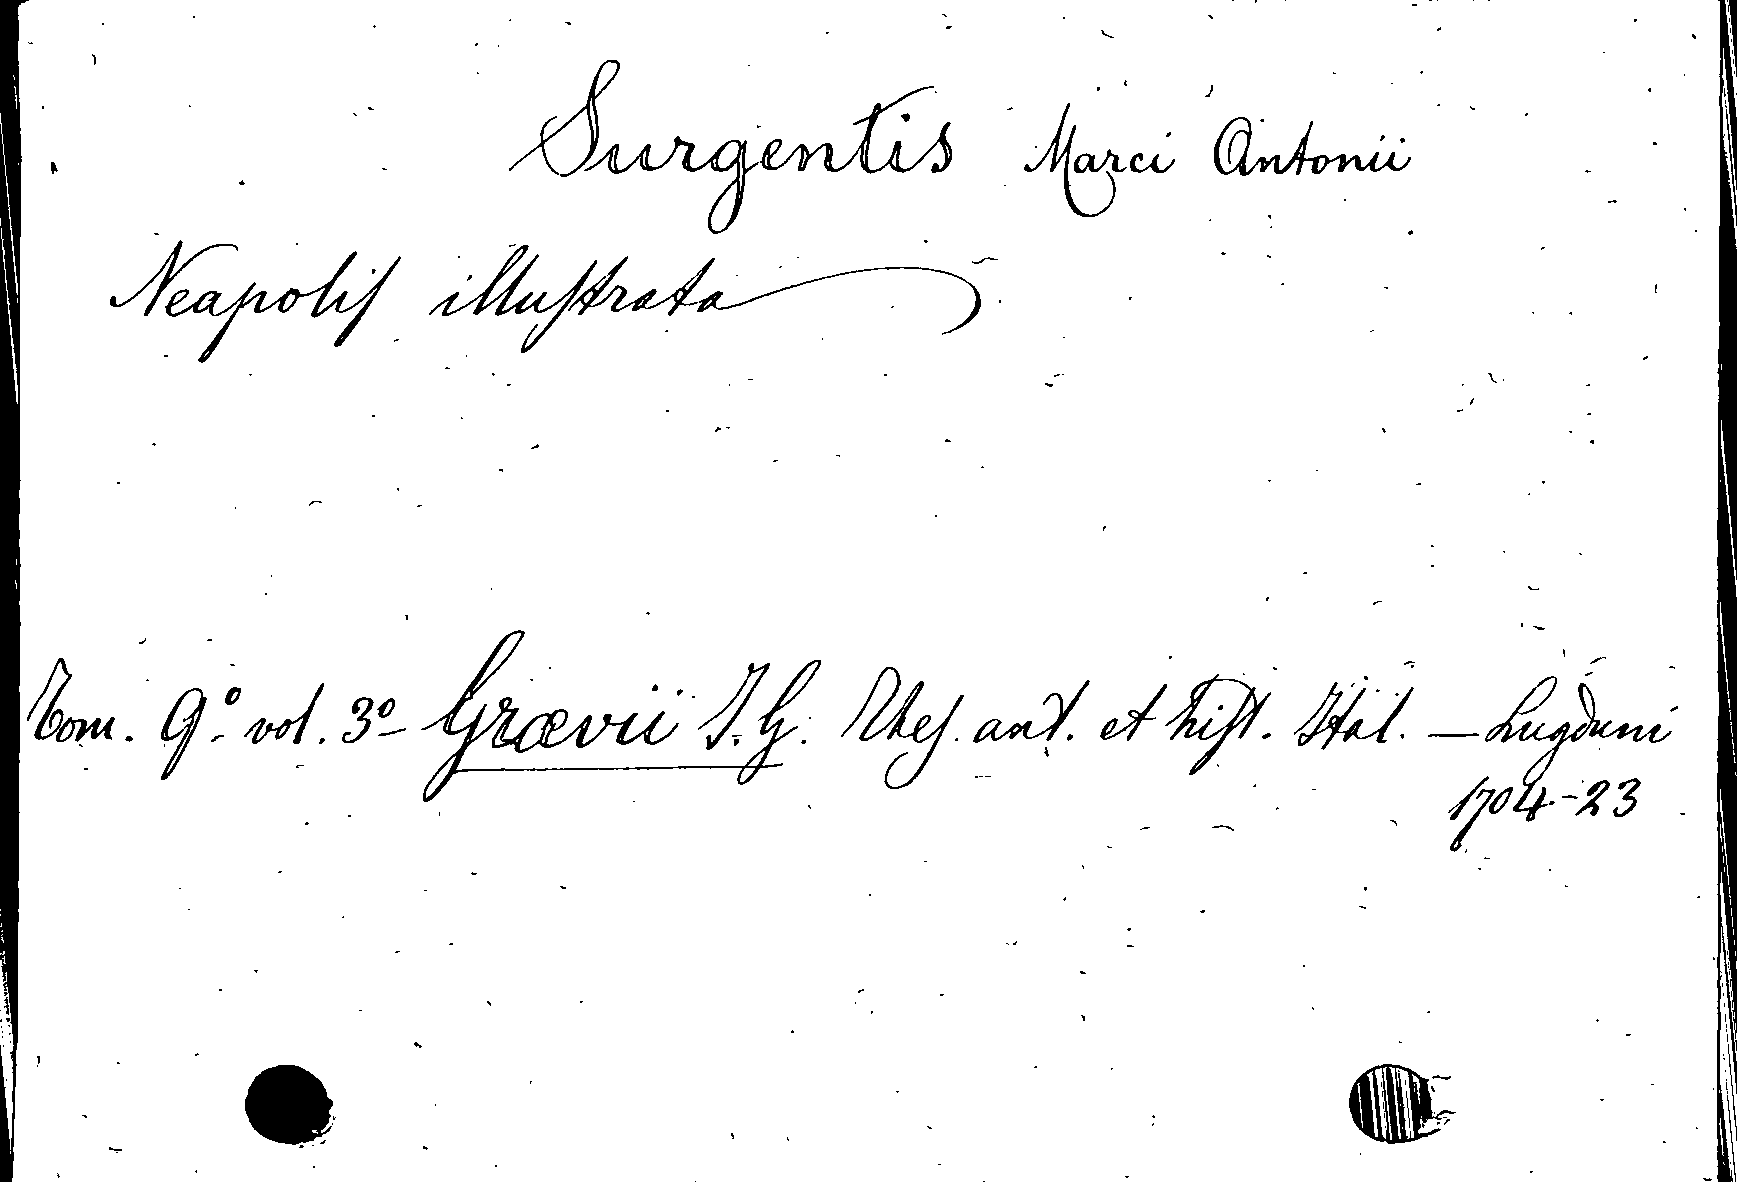 Surgentis Marci Antonii
Neapolis illustrata
Tom. 9º vol. 3º Grævii J. G. Thes. ant. et hist. Ital. — Lugduni
1704-23